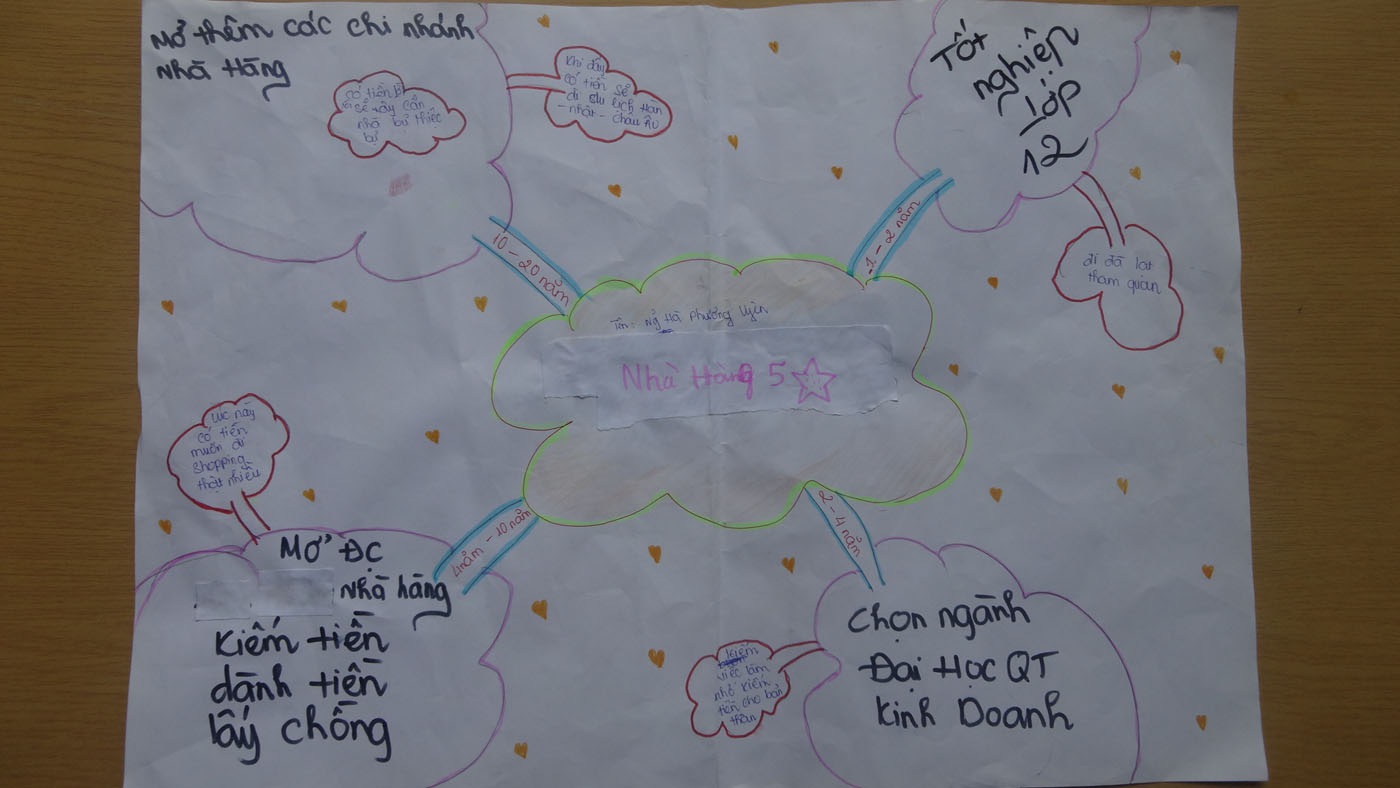 Mở thêm các chi nhánh
Nhà Hàng
có tiền
sẽ xây căn
nhà bự thiệc
bự
Khi đấy
có tiền sẽ
đi du lịch Hàn
- nhật - châu Âu
Tốt
nghiệp
lớp
12
đi đà lạt
tham quan
10 - 20 năm
1 - 2 năm
Tên: Ng Hà Phương Uyên
Nhà Hàng 5
Lúc này
có tiền
muốn đi
shopping
thật nhiều
4 năm - 10 năm
2 - 4 năm
MỞ ĐC
nhà hàng
Kiếm tiền
dành tiền
lấy chồng
Kiếm
việc làm
nhỏ kiếm
tiền cho bản
thân
Chọn ngành
Đại Học QT
Kinh Doanh